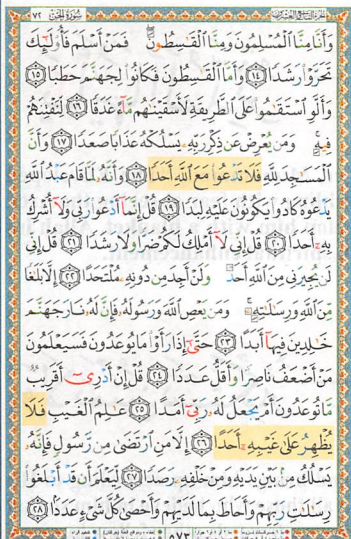 سُورَةُ الجِنّ ٧٢
وَأَنَّا مِنَّا الْمُسْلِمُونَ وَمِنَّا الْقَاسِطُونَ فَمَنْ أَسْلَمَ فَأُولَٰئِكَ
تَحَرَّوْا رَشَدًا ۝١٤ وَأَمَّا الْقَاسِطُونَ فَكَانُوا لِجَهَنَّمَ حَطَبًا ۝١٥
وَأَلَّوِ اسْتَقَامُوا عَلَى الطَّرِيقَةِ لَأَسْقَيْنَاهُم مَّاءً غَدَقًا ۝١٦ لِنَفْتِنَهُمْ
فِيهِ وَمَن يُعْرِضْ عَن ذِكْرِ رَبِّهِ يَسْلُكْهُ عَذَابًا صَعَدًا ۝١٧ وَأَنَّ
الْمَسَاجِدَ لِلَّهِ فَلَا تَدْعُوا مَعَ اللَّهِ أَحَدًا ۝١٨ وَأَنَّهُ لَمَّا قَامَ عَبْدُ اللَّهِ
يَدْعُوهُ كَادُوا يَكُونُونَ عَلَيْهِ لِبَدًا ۝١٩ قُلْ إِنَّمَا أَدْعُو رَبِّي وَلَا أُشْرِكُ
بِهِ أَحَدًا ۝٢٠ قُلْ إِنِّي لَا أَمْلِكُ لَكُمْ ضَرًّا وَلَا رَشَدًا ۝٢١ قُلْ إِنِّي
لَن يُجِيرَنِي مِنَ اللَّهِ أَحَدٌ وَلَنْ أَجِدَ مِن دُونِهِ مُلْتَحَدًا ۝٢٢ إِلَّا بَلَاغًا
مِّنَ اللَّهِ وَرِسَالَاتِهِ وَمَن يَعْصِ اللَّهَ وَرَسُولَهُ فَإِنَّ لَهُ نَارَ جَهَنَّمَ
خَالِدِينَ فِيهَا أَبَدًا ۝٢٣ حَتَّىٰ إِذَا رَأَوْا مَا يُوعَدُونَ فَسَيَعْلَمُونَ
مَنْ أَضْعَفُ نَاصِرًا وَأَقَلُّ عَدَدًا ۝٢٤ قُلْ إِنْ أَدْرِي أَقَرِيبٌ
مَّا تُوعَدُونَ أَمْ يَجْعَلُ لَهُ رَبِّي أَمَدًا ۝٢٥ عَالِمُ الْغَيْبِ فَلَا
يُظْهِرُ عَلَىٰ غَيْبِهِ أَحَدًا ۝٢٦ إِلَّا مَنِ ارْتَضَىٰ مِن رَّسُولٍ فَإِنَّهُ
يَسْلُكُ مِن بَيْنِ يَدَيْهِ وَمِنْ خَلْفِهِ رَصَدًا ۝٢٧ لِّيَعْلَمَ أَن قَدْ أَبْلَغُوا
رِسَالَاتِ رَبِّهِمْ وَأَحَاطَ بِمَا لَدَيْهِمْ وَأَحْصَىٰ كُلَّ شَيْءٍ عَدَدًا ۝٢٨
٥٧٣